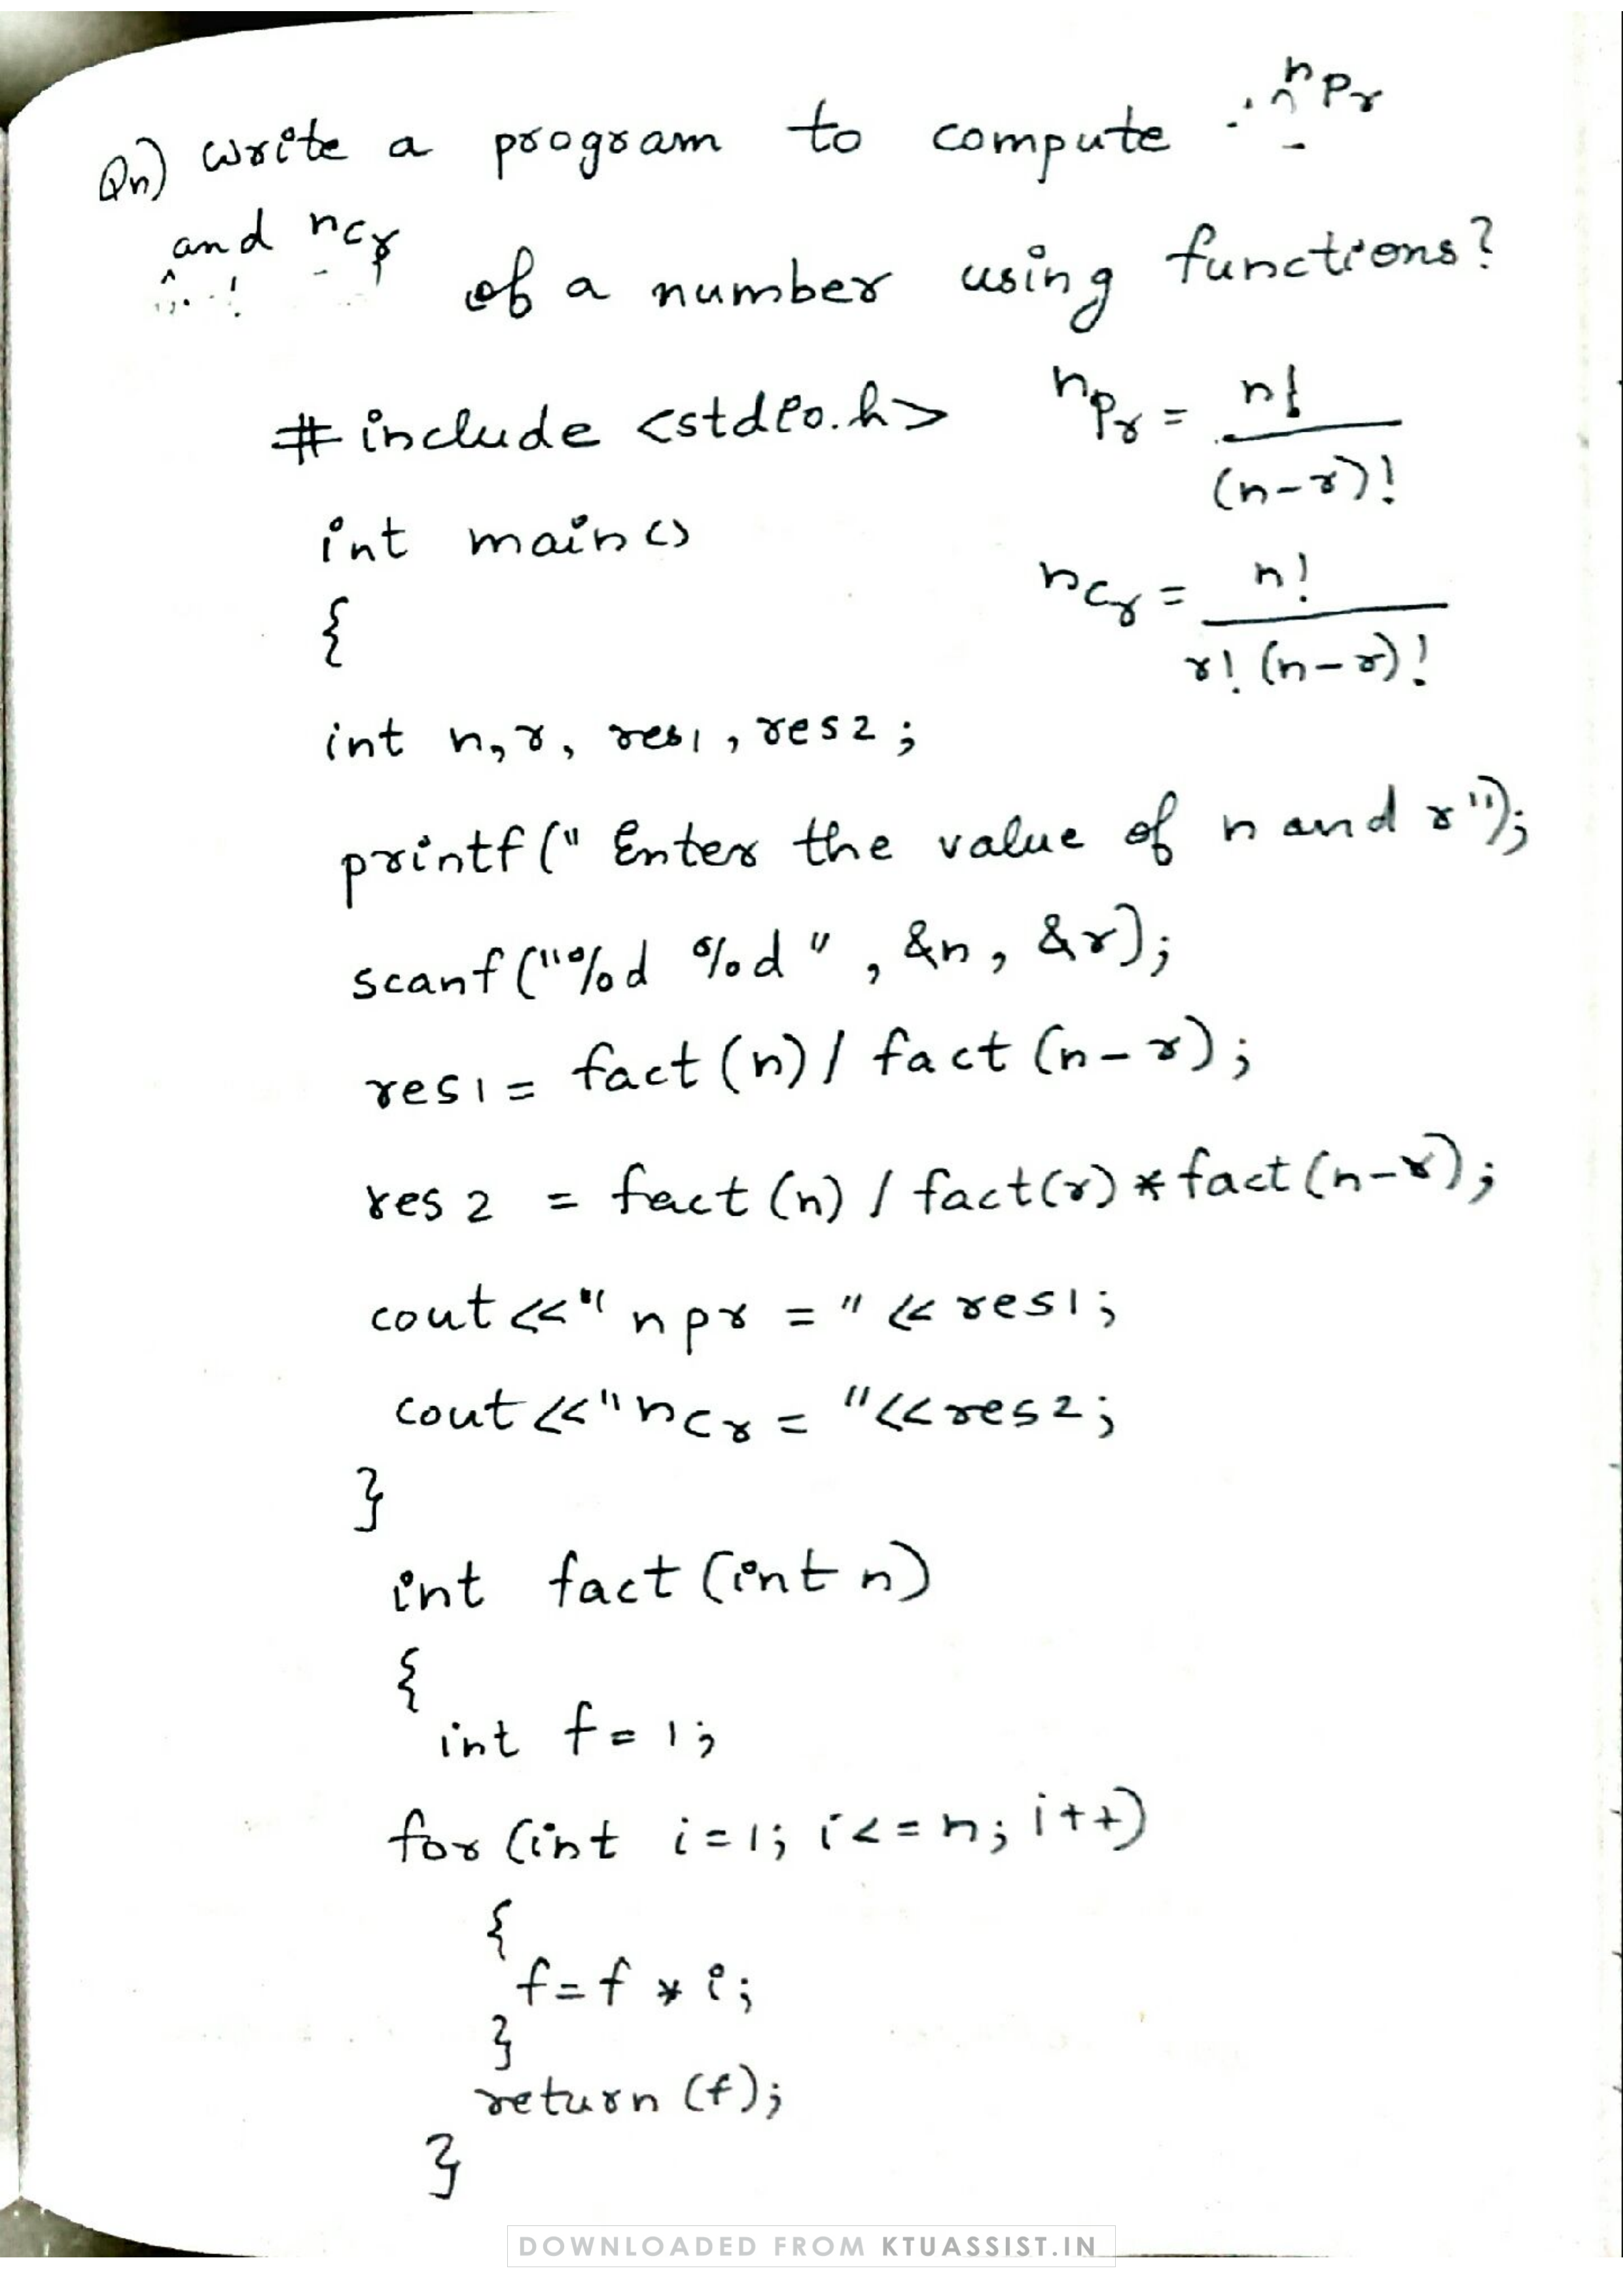 Qn) Write a program to compute nPr
and ncr of a number using functions?
#include <stdio.h>
nPr = n!
(n-r)!
int main()
{
ncr = n!
r! (n-r)!
int n, r, res1, res2;
printf(" Enter the value of n and r");
scanf("%d %d", &n, &r);
res1 = fact(n) / fact(n-r);
res2 = fact(n) / fact(r) * fact(n-r);
cout<<"npr = "<<res1;
cout<<"ncr = "<<res2;
}
int fact(int n)
{
int f=1;
for(int i=1; i<=n; i++)
{
f=f*i;
}
return(f);
}
DOWNLOADED FROM KTUASSIST.IN